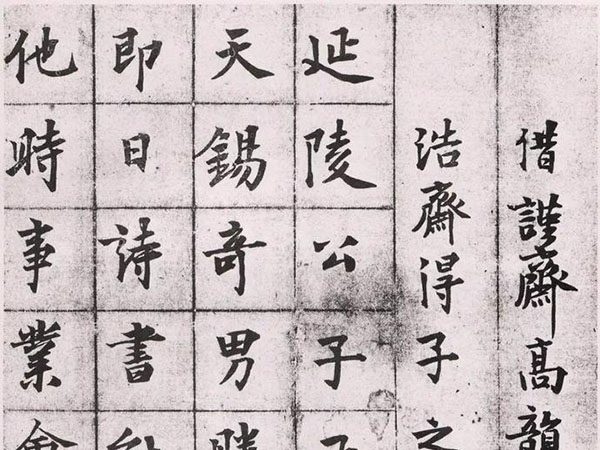 借謹齋高韻
浩齋得子之
延陵公子
天錫奇男
即日詩書
他時事業